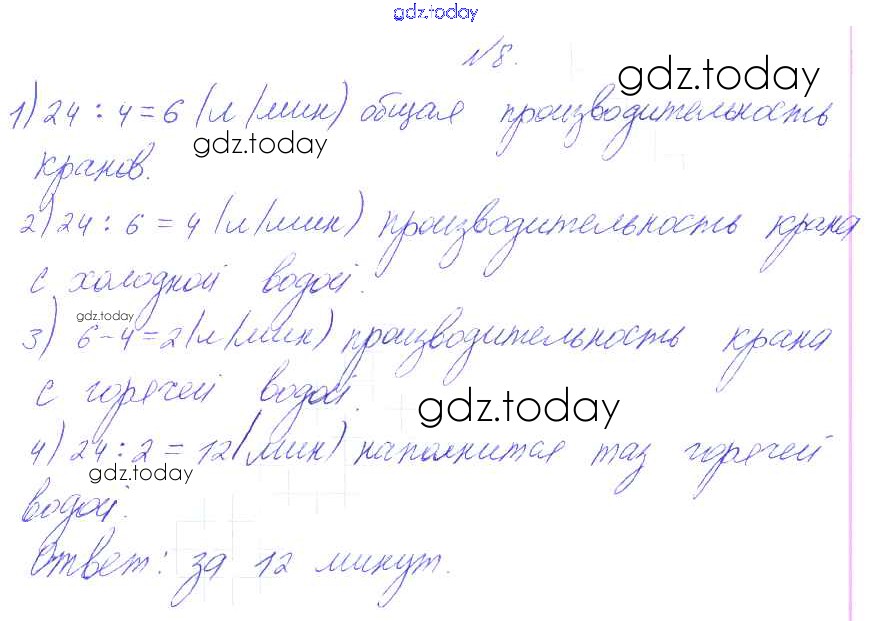 gdz.today
№8.
gdz.today
1) 24 : 4 = 6 (л/мин) общая производительность
gdz.today
кранов.
2) 24 : 6 = 4 (л/мин) производительность крана
с холодной водой.
gdz.today
3) 6 - 4 = 2 (л/мин) производительность крана
с горячей водой.
gdz.today
4) 24 : 2 = 12 (мин) наполнится таз горячей
gdz.today
водой.
Ответ: за 12 минут.